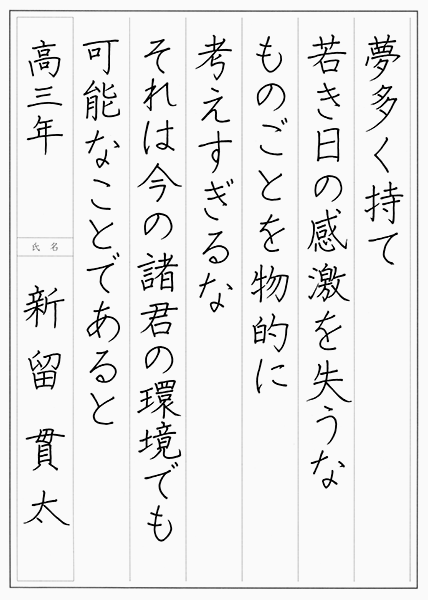 夢多く持て
若き日の感激を失うな
ものごとを物的に
考えすぎるな
それは今の諸君の環境でも
可能なことであると
高三年
氏名
新留貫太